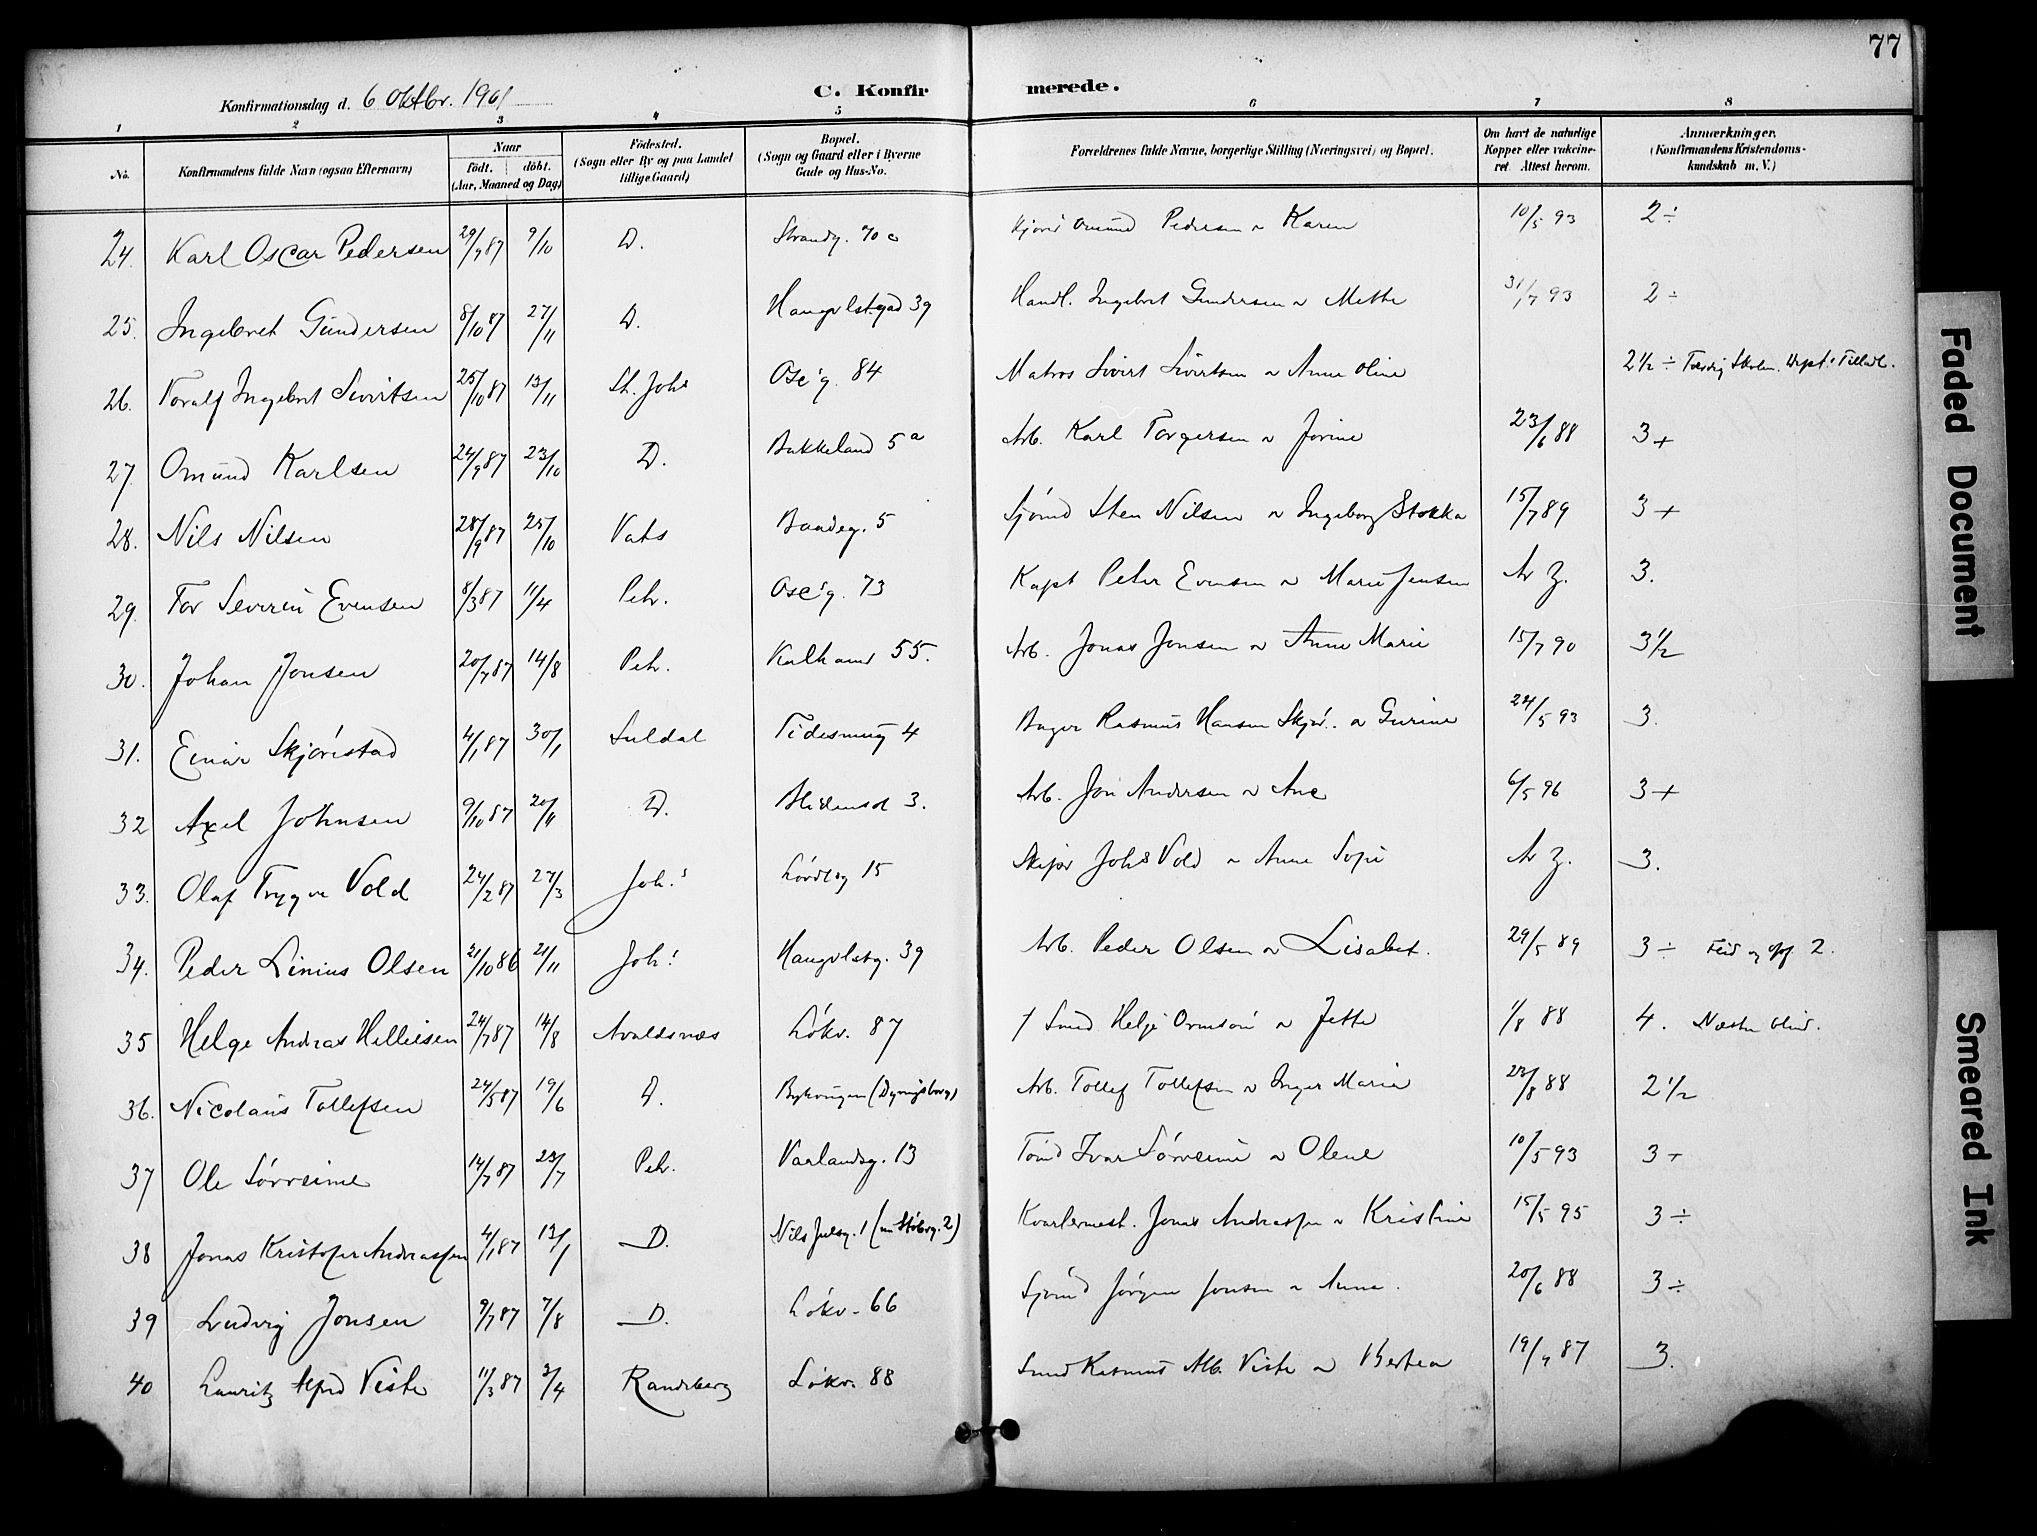 77
Konfirmationsdag d. 6 Oktbr. 1901
C. Konfirmerede.
1 2 3 4 5 6 7 8
No. Konfirmandens fulde Navn (ogsaa Efternavn) Naar födt. döbt. (Aar, Maaned og Dag) Födested. (Sogn eller By og paa Landet tillige Gaard) Bopæl. (Sogn og Gaard eller i Byerne Gade og Hus-No. Forældrenes fulde Navne, borgerlige Stilling (Næringsvei) og Bopæl. Om havt de naturlige Kopper eller vakcineret. Attest herom. Anmærkninger. (Konfirmandens Kristendomskundskab m. V.)
24. Karl Oscar Pedersen 29/9 87 9/10 D. Strandg. 70 c Omund Pedersen & Karen 10/5 93 2 ÷
25. Ingebret Gundersen 8/10 87 27/11 D. Haugvlstgad 39 Handl. Ingebret Gundersen & Mette 31/7 93 2 ÷
26. Toralf Ingebret Sivertsen 25/10 87 13/11 St. Johs Ose'g. 84 Matros Sivert Sivertsen & Anne Oline 2 1/2 ÷
27. Omund Karlsen 24/9 87 23/10 D. Bakkeland 5 a Arb. Karl Torgersen & Jorine 23/6 88 3 +
28. Nils Nilsen 28/9 87 25/10 Vats Baadeg. 5 Sjömd Sten Nilsen & Ingeborg Stokka 15/7 89 3 +
29. Tor Severin Evensen 8/3 87 11/4 Petr. Ose'g. 73 Kapt Peter Evensen & Marie Jensen Ar Z. 3.
30. Johan Jonsen 20/7 87 14/8 Petr. Kalhamr 55. Arb. Jonas Jonsen & Anne Marie 15/7 90 3 1/2
31. Einar Skjörestad 4/1 87 30/1 Suldal Tidesmug 4 Bager Rasmus Hansen Skjör. & Gurine 24/5 93 3.
32 Axel Johnsen 9/10 87 20/11 D. Blidensol 3. Arb. Jon Andersen & Ane 6/5 96 3 +
33. Olaf Trygve Vold 24/2 87 27/3 Joh.s Lövdlsg 15 Skipr Johs Vold & Anne Sofie Ar Z. 3.
34. Peder Linius Olsen 31/10 86 21/11 Joh.s Haugvlstg. 39 Arb. Peder Olsen & Lisabet. 29/5 89 3 ÷ Flid og Opf. 2.
35 Helge Andreas Helliesen 24/7 87 14/8 Avaldsnæs Lökv. 87 † Smed Helje Ormson & Jette 1/8 88 4. Næsten blind.
36. Nicolaus Tollefsen 24/5 87 19/6 D. Arb. Tollef Tollefsen & Inger Marie 23/8 88 2 1/2
37 Ole Sörreime 14/7 87 23/7 Petr. Varlandsg. 13 Tömd Ivar Sörreime & Olene 10/5 93 3 +
38 Jonas Kristofer Andreassen 4/1 87 13/1 D. Nils Julsg. 1 Kvartermest. Jonas Andreassen & Kristine 15/5 95 3 ÷
39 Ludvig Jonsen 9/7 87 7/8 D. Lökv. 66 Sjömd Jörgen Jonsen & Anna. 20/6 88 3 ÷
40 Lauritz Alfred Viste 11/3 87 3/4 Randeberg Lökv. 88 Smed Rasmus Alb. Viste & Bertea 19/7 87 3.
Faded Document
Smeared Ink